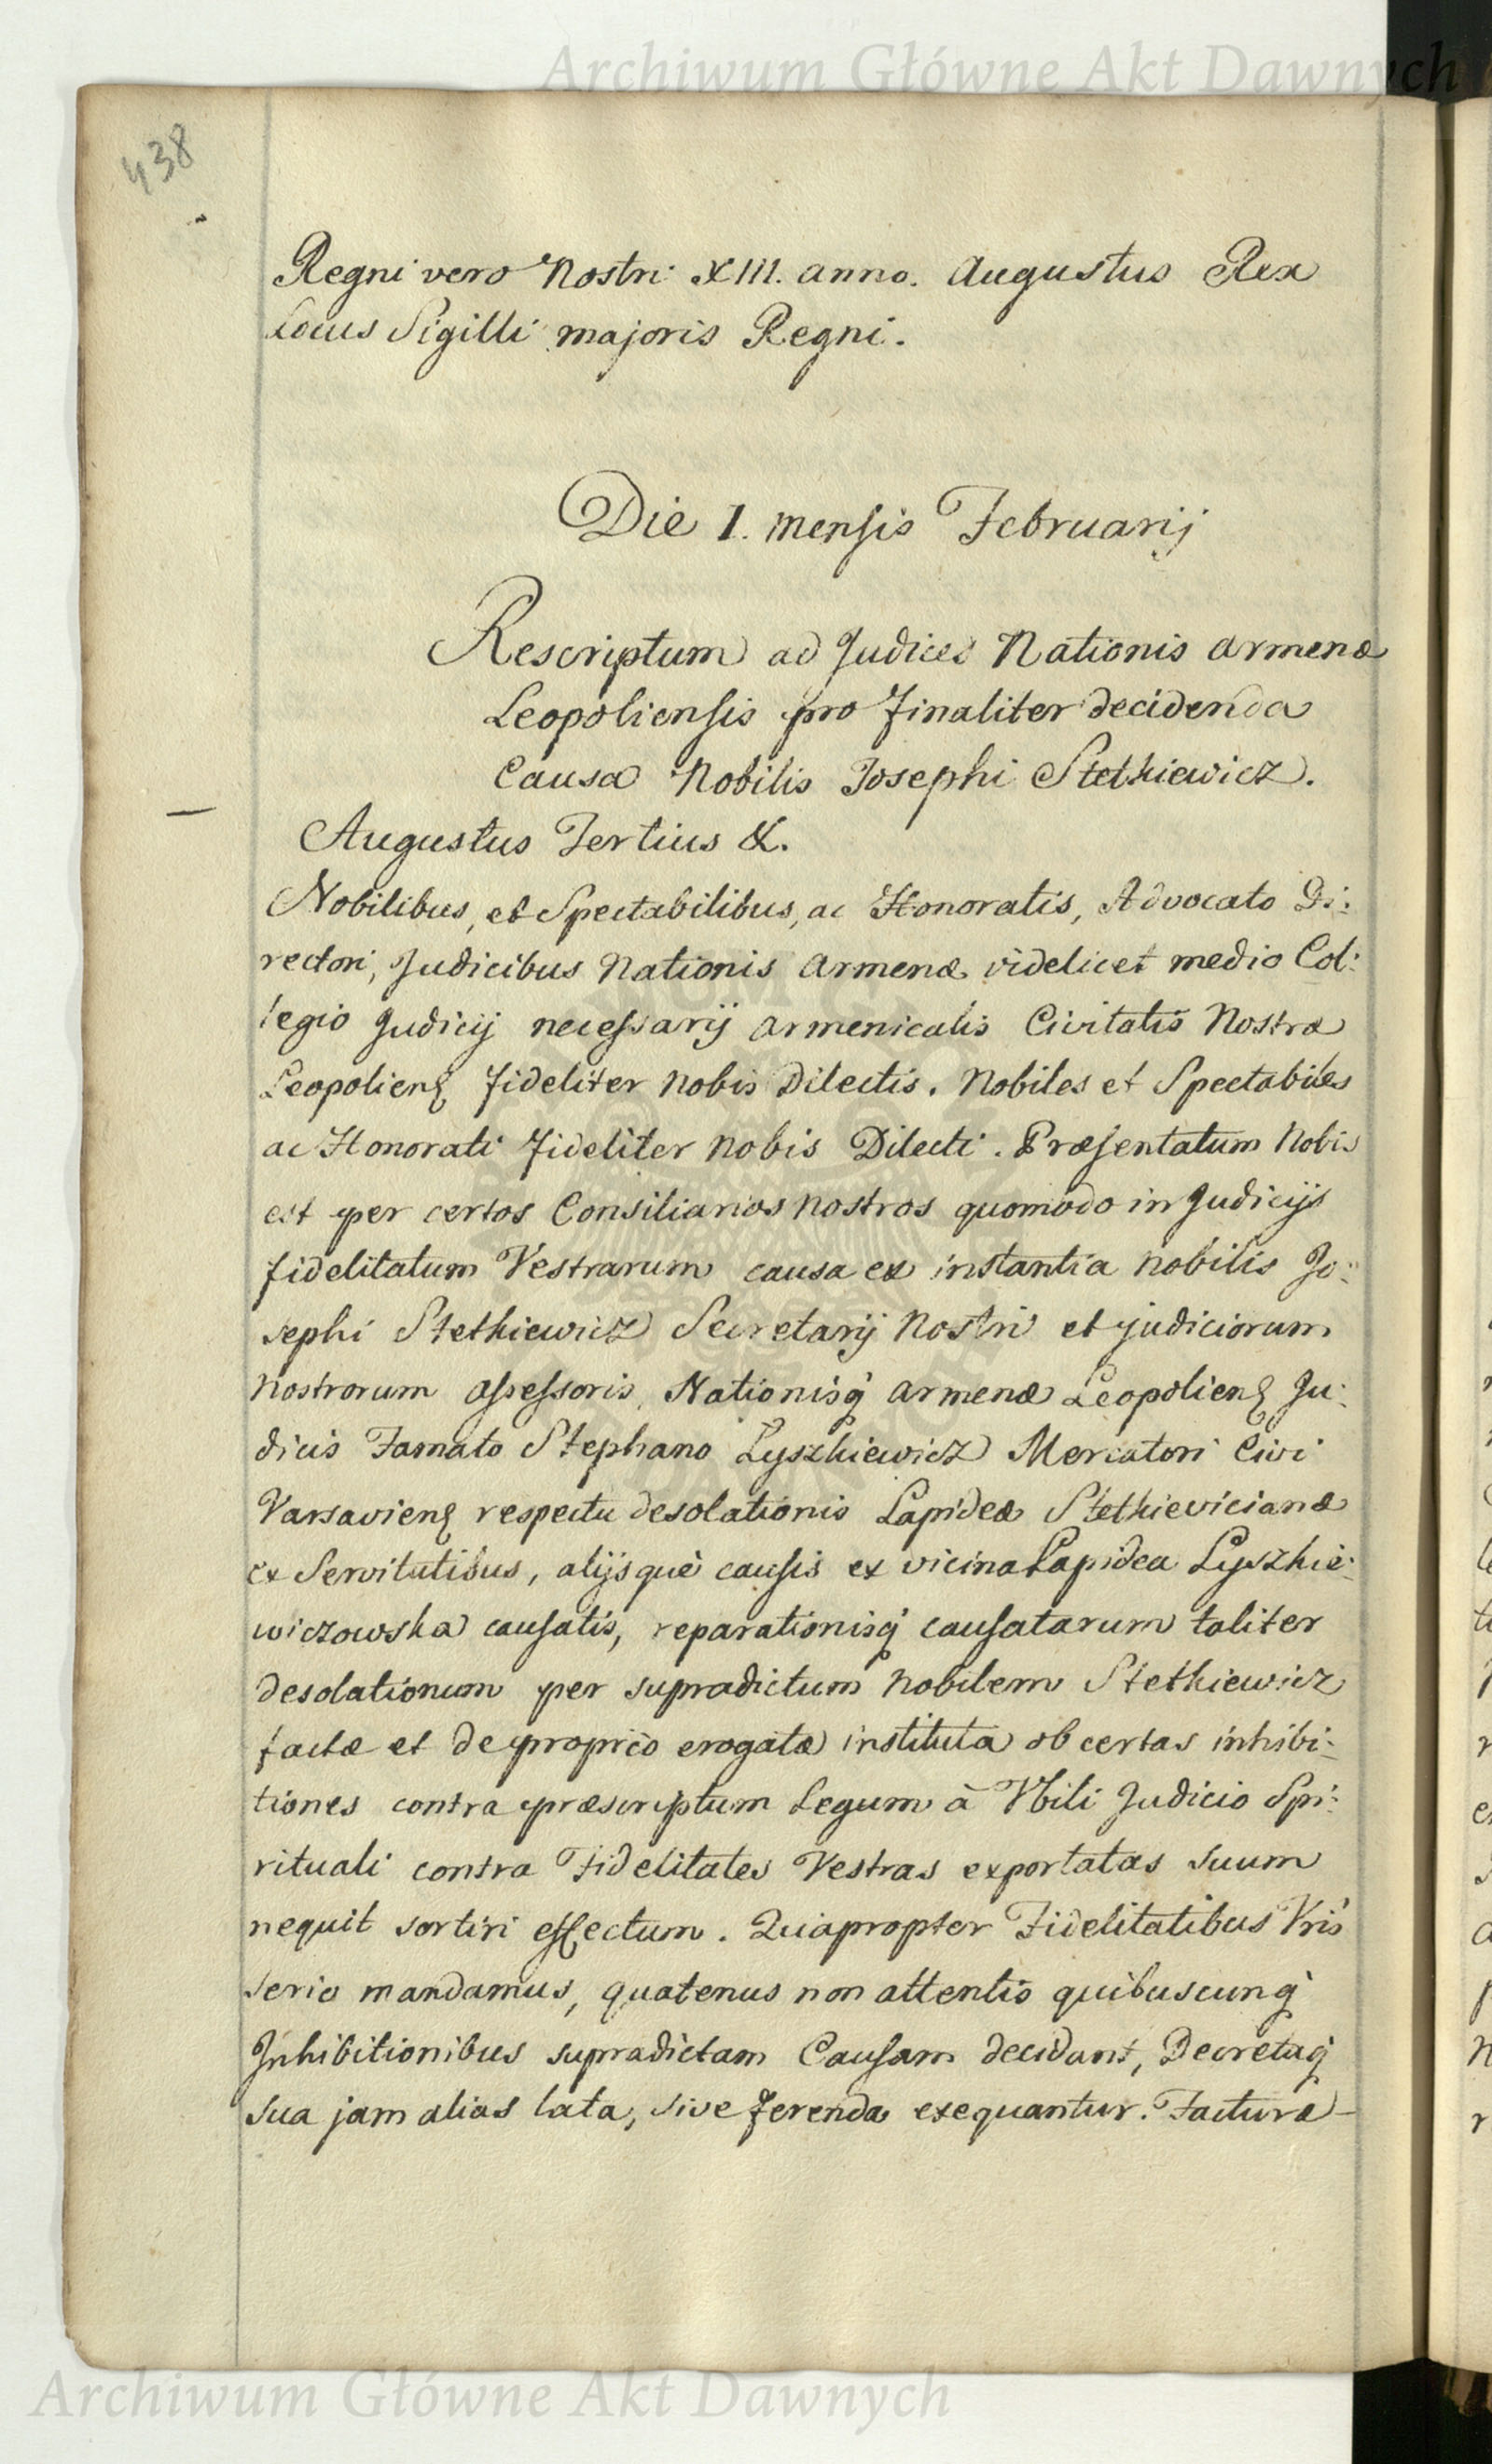 Archiwum Główne Akt Dawnych
438
Regni vero Nostri XIII. anno. Augustus Rex
Locus Sigilli majoris Regni.
Die 1. mensis Februarij
Rescriptum ad Judices Nationis Armenæ
Leopoliensis pro finaliter decidenda
Causa Nobilis Josephi Stethkiewicz.
Augustus Tertius &.
Nobilibus, et Spectabilibus, ac Honoratis, Advocato Di:
rectori, Judicibus Nationis Armenæ videlicet medio Col:
legio Judicij necessarij Armenicalis Civitatis Nostræ
Leopolienſ fideliter Nobis Dilectis. Nobiles et Spectabiles
ac Honorati fideliter Nobis Dilecti. Præsentatum Nobis
est per certos Consiliarios Nostros quomodo in Judicijs
fidelitatum Vestrarum causa ex instantia Nobilis Jo:
sephi Stethkiewicz Secretarij Nostri et judiciorum
Nostrorum Assessoris, Nationisq́ Armenæ Leopolienſ Ju:
dicis Famato Stephano Lyszkiewicz Mercatori Civi
Varsavienſ respectu desolationis Lapideæ Stethkievicianæ
ex Servitutibus, alijsquè causis ex vicina Lapidea Lyszkie:
wiczowska causatis, reparationisq́ causatarum taliter
desolationum per supradictum Nobilem Stethkiewicz
factæ et de proprio erogatæ instituta ob certas inhibi:
tiones contra præscriptum Legum à Vbili Judicio Spi:
rituali contra Fidelitates Vestras exportatas suum
nequit sortiri effectum. Quapropter Fidelitatibus Vris
serio mandamus, quatenus non attentis quibuscunq́
Inhibitionibus supradictam Causam decidant, Decretaq́
sua jam alias lata, sive ferenda exequantur. Facturæ
Archiwum Główne Akt Dawnych